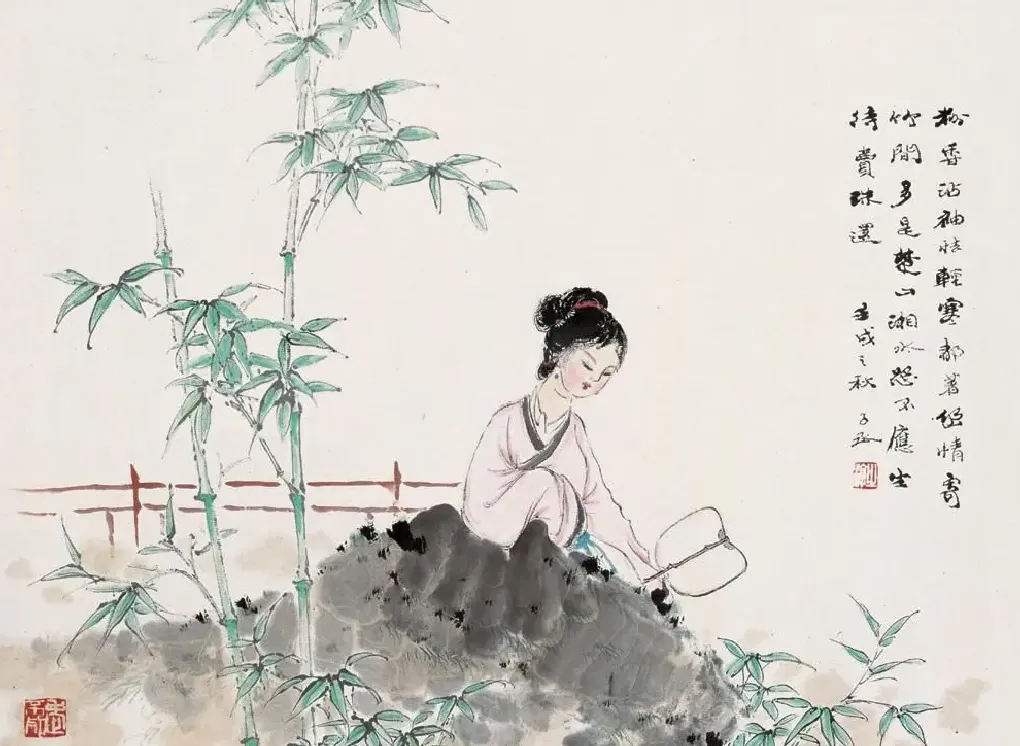 粉香沾袖怯輕寒都著情寄
竹間多是楚山湘水怨不應坐
待賣珠還
壬戌之秋 子